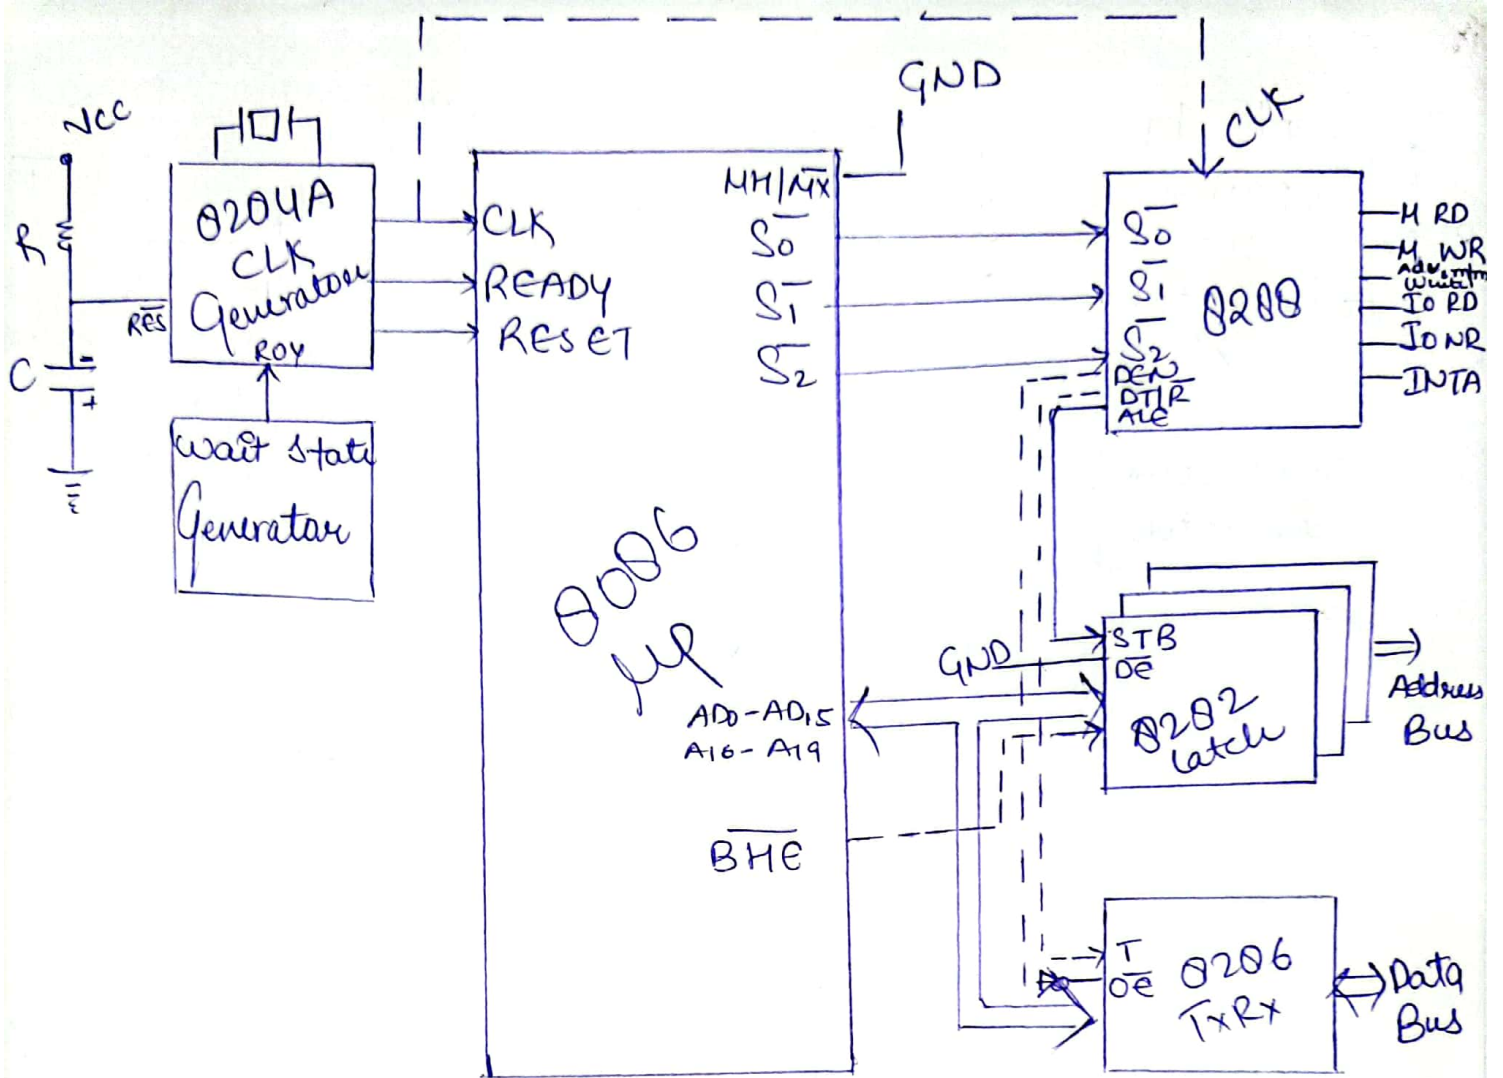 VCC
R
C
RES
8284A
CLK
Generator
RDY
Wait State
Generator
GND
CLK
READY
RESET
MN/MX
S0
S1
S2
8086
μp
AD0-AD15
A16-A19
BHE
CLK
S0
S1
S2
DEN
DT/R
ALE
8288
M RD
M WR
IO RD
IO WR
INTA
GND
STB
OE
8282
Latch
Address
Bus
T
OE
8286
TxRx
Data
Bus